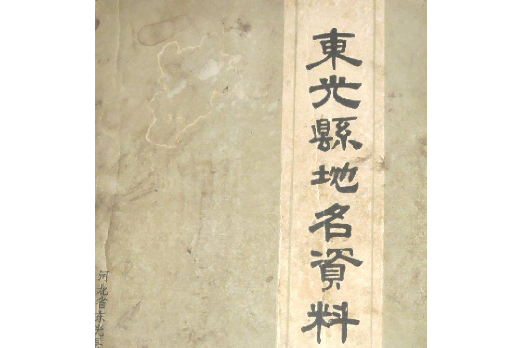 東光縣地名資料
河北省东光县